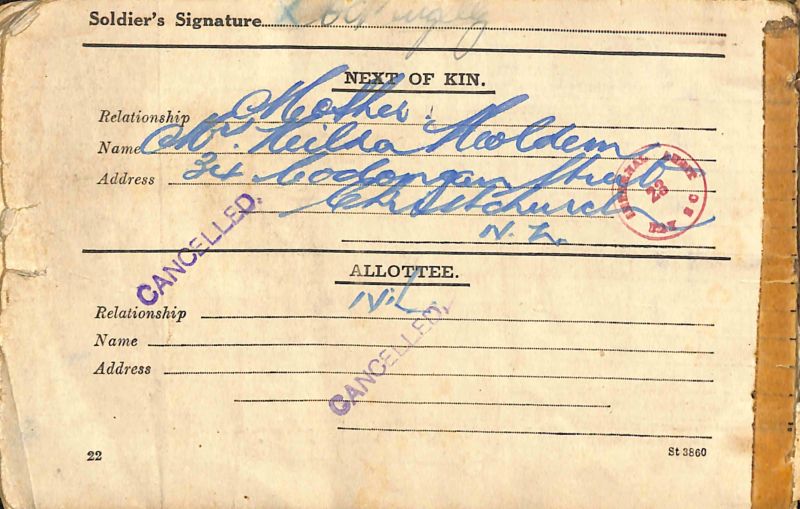 Soldier's Signature
NEXT OF KIN.
Relationship Mother.
Name Mrs. Holdem
Address 34 Street
Christchurch
N.Z.
CANCELLED.
ALLOTTEE.
Relationship Nil.
Name
Address
CANCELLED.
22 St 3860